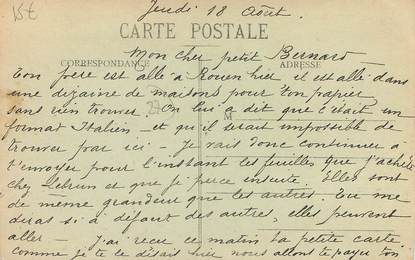 15€
Jeudi 18 Août.
CARTE POSTALE
Mon cher petit Bernard
CORRESPONDANCE
ADRESSE
Ton père est allé à Rouen hier il est allé dans
une dizaine de maisons pour ton papier
sans rien trouver. On lui a dit que c'était un
M
format Italien - et qu'il serait impossible de
trouver par ici - Je vais donc continuer à
t'envoyer pour l'instant les feuilles que j'achète
chez Lebrun et que je perce ensuite. Elles sont
de même grandeur que les autres. Tu me
diras si à défaut des autres, elles peuvent
aller - J'ai reçu ce matin ta petite carte.
comme je te le disais hier nous allons te payer ton